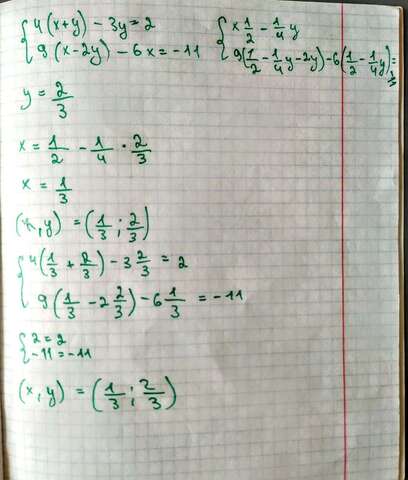 {4(x+y) - 3y = 2
{9(x-2y) - 6x = -11
{x 1/2 - 1/4 y
{9(1/2 - 1/4 y - 2y) - 6(1/2 - 1/4 y) =
y = 2/3
x = 1/2 - 1/4 · 2/3
x = 1/3
(x, y) = (1/3 ; 2/3)
{4(1/3 + 2/3) - 3 2/3 = 2
{9(1/3 - 2 2/3) - 6 1/3 = -11
{2 = 2
{-11 = -11
(x, y) = (1/3 ; 2/3)